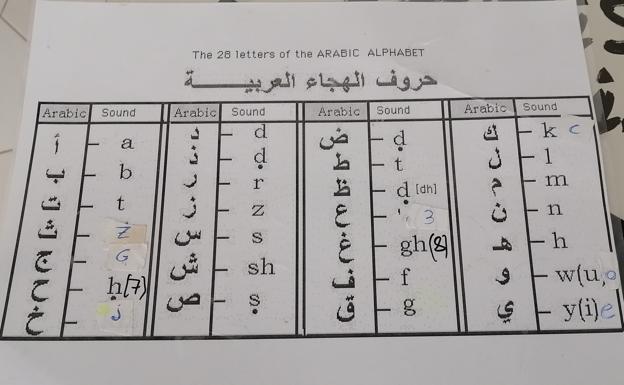 The 28 letters of the ARABIC ALPHABET
حروف الهجاء العربيـــــة
Arabic Sound Arabic Sound Arabic Sound Arabic Sound
أ - a د - d ض - ḍ ك - k c
ب - b ذ - ḍ ط - t ل - l
ت - t ر - r ظ - ḍ [dh] م - m
ث - Z ز - z ع - ' 3 ن - n
ج - G س - s غ - gh(8) ه - h
ح - ḥ(7) ش - sh ف - f و - w(u,o
خ - j ص - ṣ ق - g ي - y(i)e